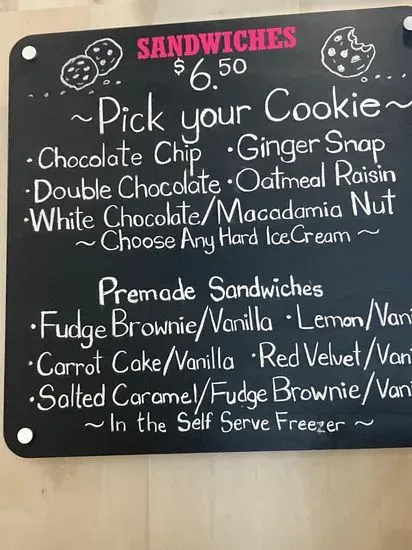 SANDWICHES
$6.50
~Pick your Cookie~
·Chocolate Chip ·Ginger Snap
·Double Chocolate ·Oatmeal Raisin
·White Chocolate/Macadamia Nut
~ Choose Any Hard Ice Cream ~
Premade Sandwiches
·Fudge Brownie/Vanilla ·Lemon/Van
·Carrot Cake/Vanilla ·Red Velvet/Van
·Salted Caramel/Fudge Brownie/Van
~ In the Self Serve Freezer ~